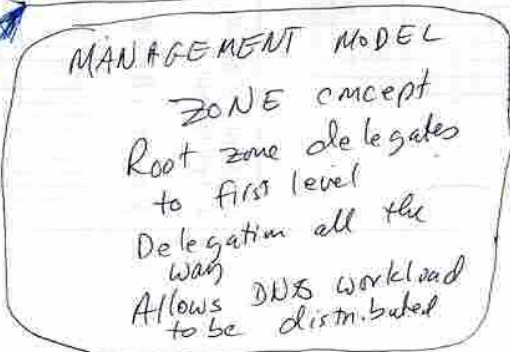 MANAGEMENT MODEL
ZONE concept
Root zone delegates
to first level
Delegation all the
way
Allows DNS workload
to be distributed